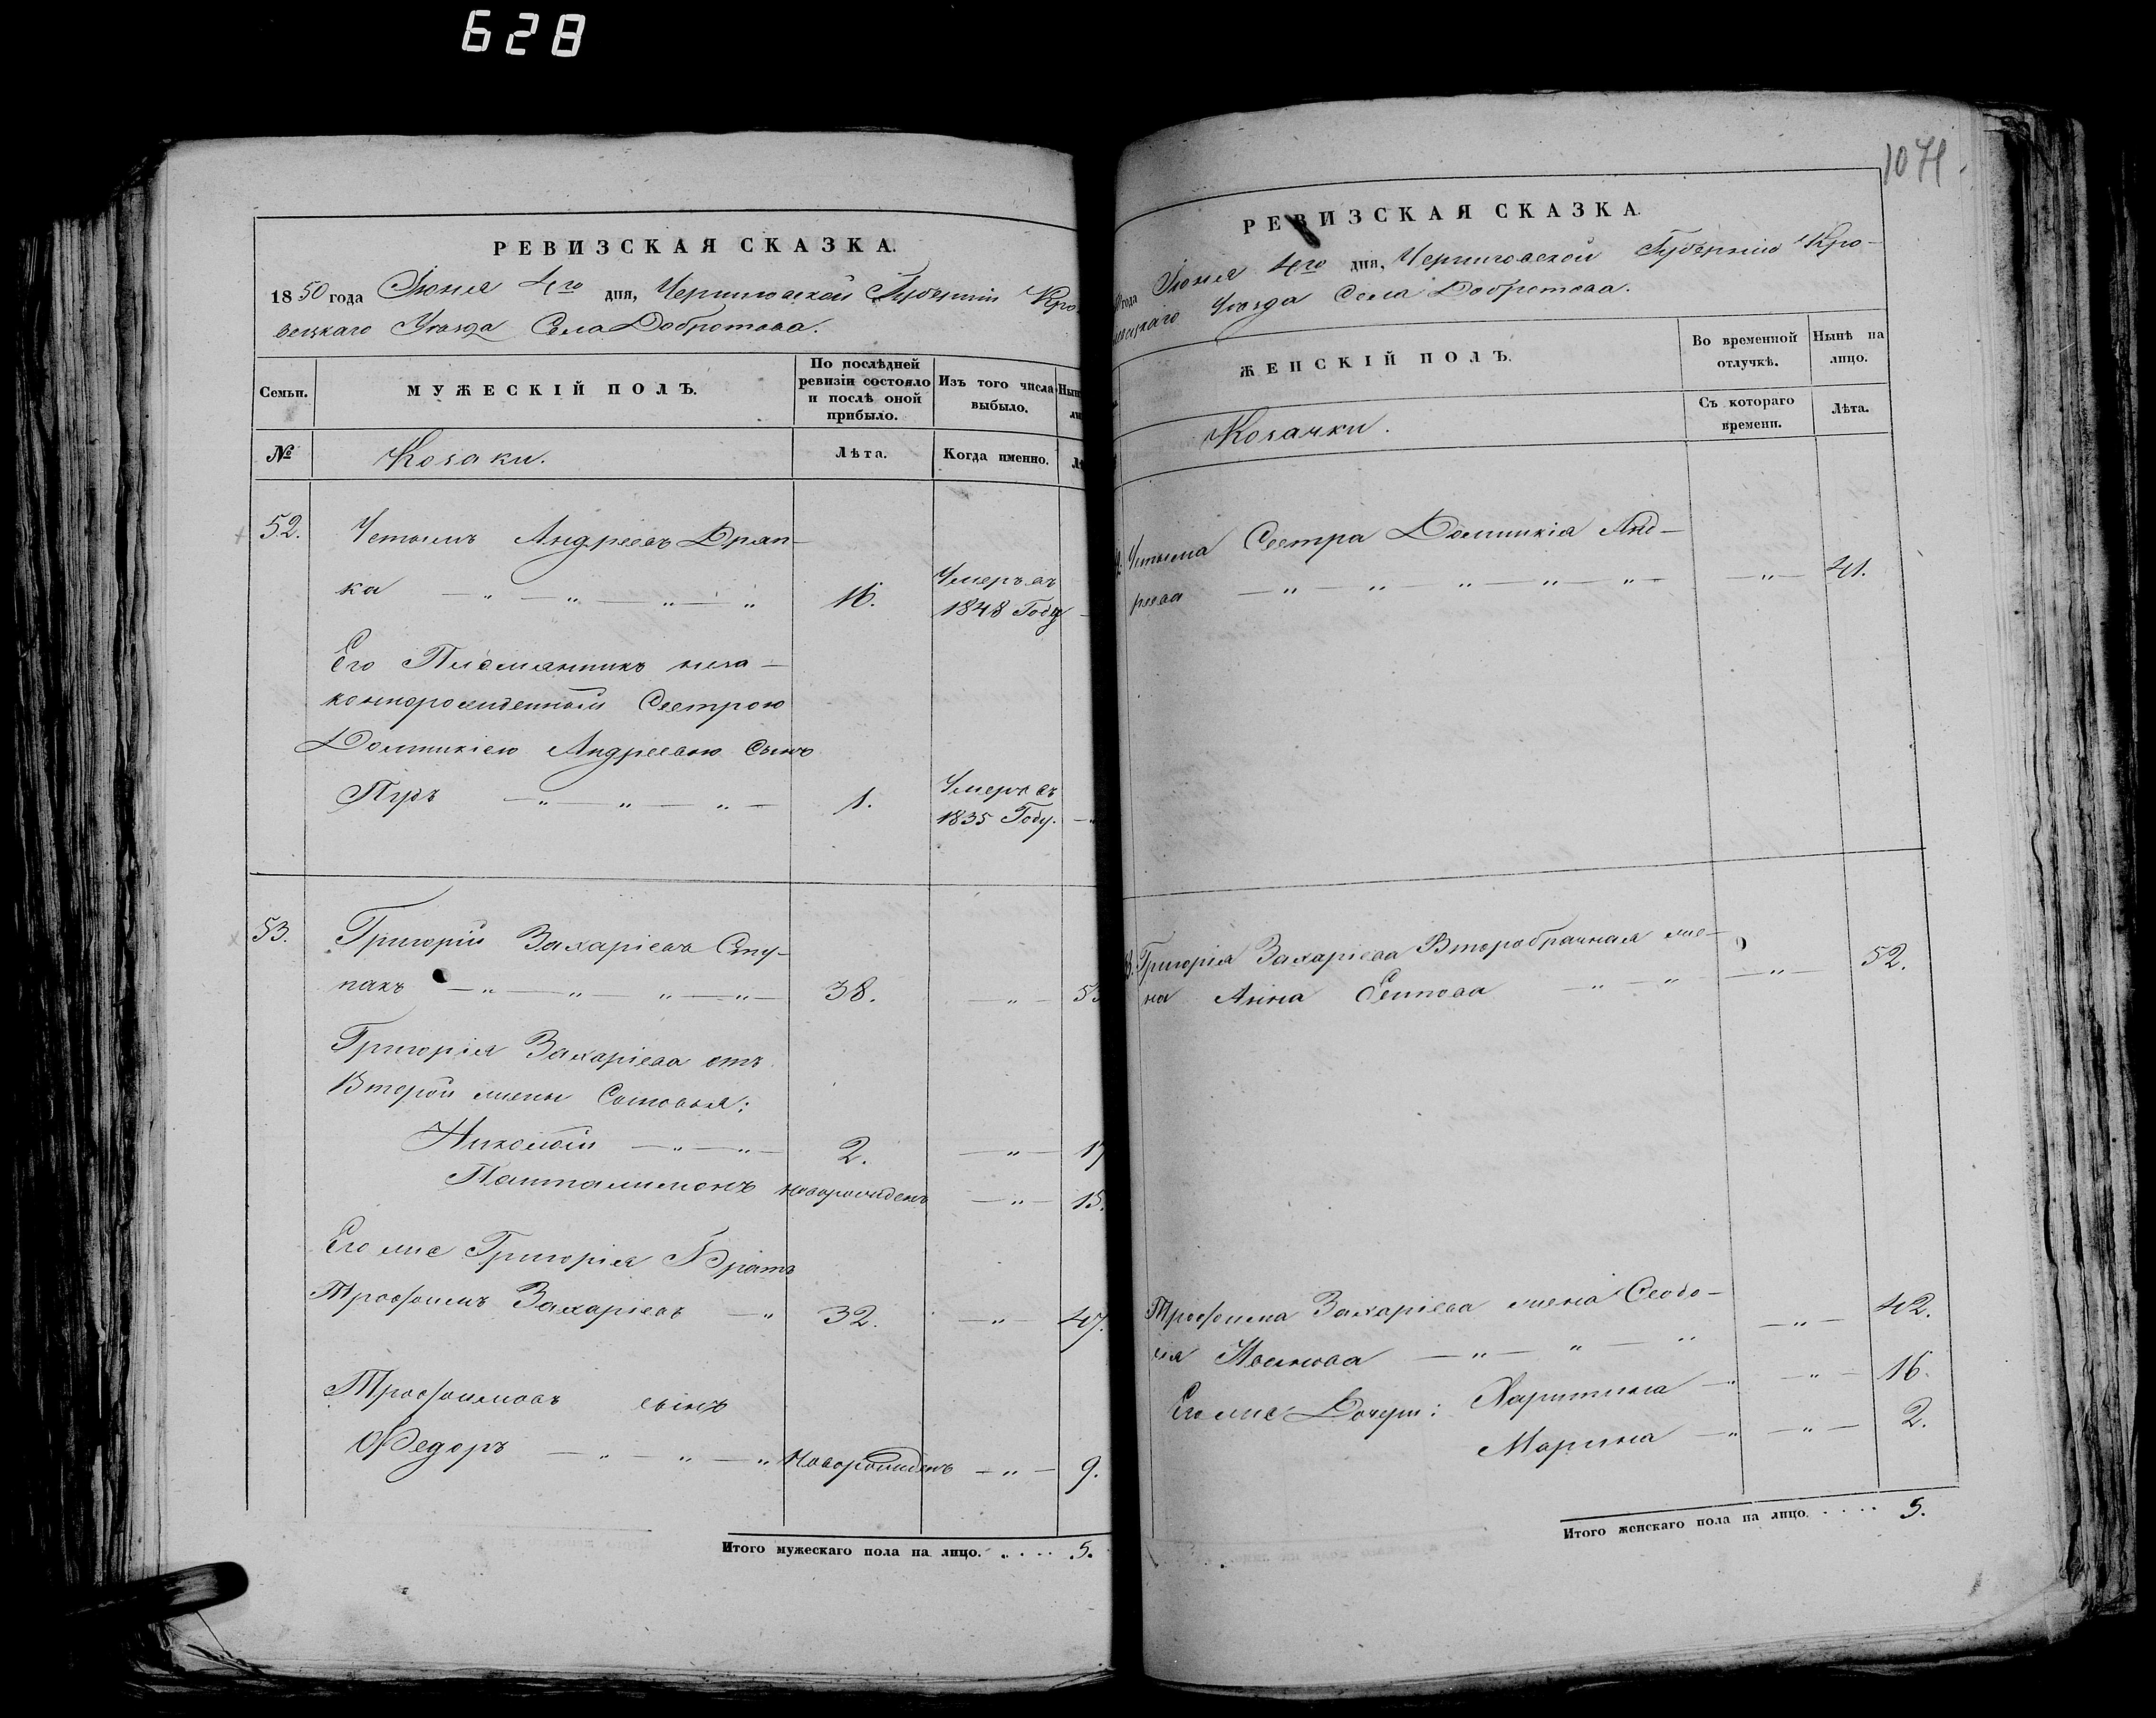 628
РЕВИЗСКАЯ СКАЗКА.
1850 года Іюня 4го дня, Черниговской Губерніи Кро-
вецкаго Уѣзда Села Добротова.
Семьи.
МУЖЕСКІЙ ПОЛЪ.
По послѣдней ревизіи состояло и послѣ оной прибыло.
Изъ того числа выбыло.
№
Козаки.
Лѣта.
Когда именно.
52. Устимъ Андреевъ Драп-
ка — 16. Умеръ въ 1848 Году
Его Племянникъ неза-
коннорожденный Сестрою
Домникіею Андреевою сынъ
1. Умеръ въ 1835 Году.
53. Григорій Захаріевъ Сту-
пакъ — 38. — 53
Григорія Захаріева отъ
Второй жены Сыновья:
Николай — 2. — 17
Панталимонъ новорожденъ — 15.
Его же Григорія Братъ
Трофимъ Захаріевъ — 32. — 47.
Трофимовъ сынъ
Федоръ — Новорожденъ — 9.
Итого мужескаго пола на лицо. . . . . 5.
1071
РЕВИЗСКАЯ СКАЗКА.
года Іюня 4го дня, Черниговской Губерніи Кро-
вецкаго Уѣзда Села Добротова.
ЖЕНСКІЙ ПОЛЪ.
Во временной отлучкѣ.
Нынѣ на лицо.
Козачки.
Съ котораго времени.
Лѣта.
Устима Сестра Домникія Анд-
реева — 41.
Григорія Захаріева Второбрачная же-
на Анна Осипова — 52.
Трофима Захаріева жена Феодо-
сія Иванова — 42.
Его же Дочери: Харитина — 16.
Марина — 2.
Итого женскаго пола на лицо. . . . . 5.